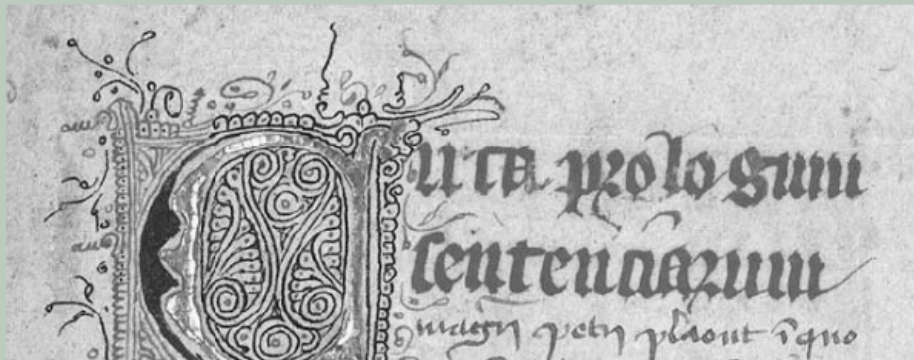 Circa prologum
sentenciarum
magri petri plaout ĩ quo